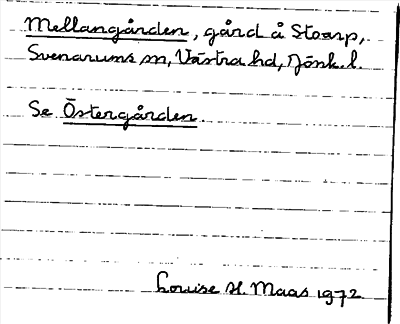 Mellangården, gård å Stoarp,
Svenarums sn, Västra hd, Jönk. l.
Se Östergården.
Louise H. Maas 1972